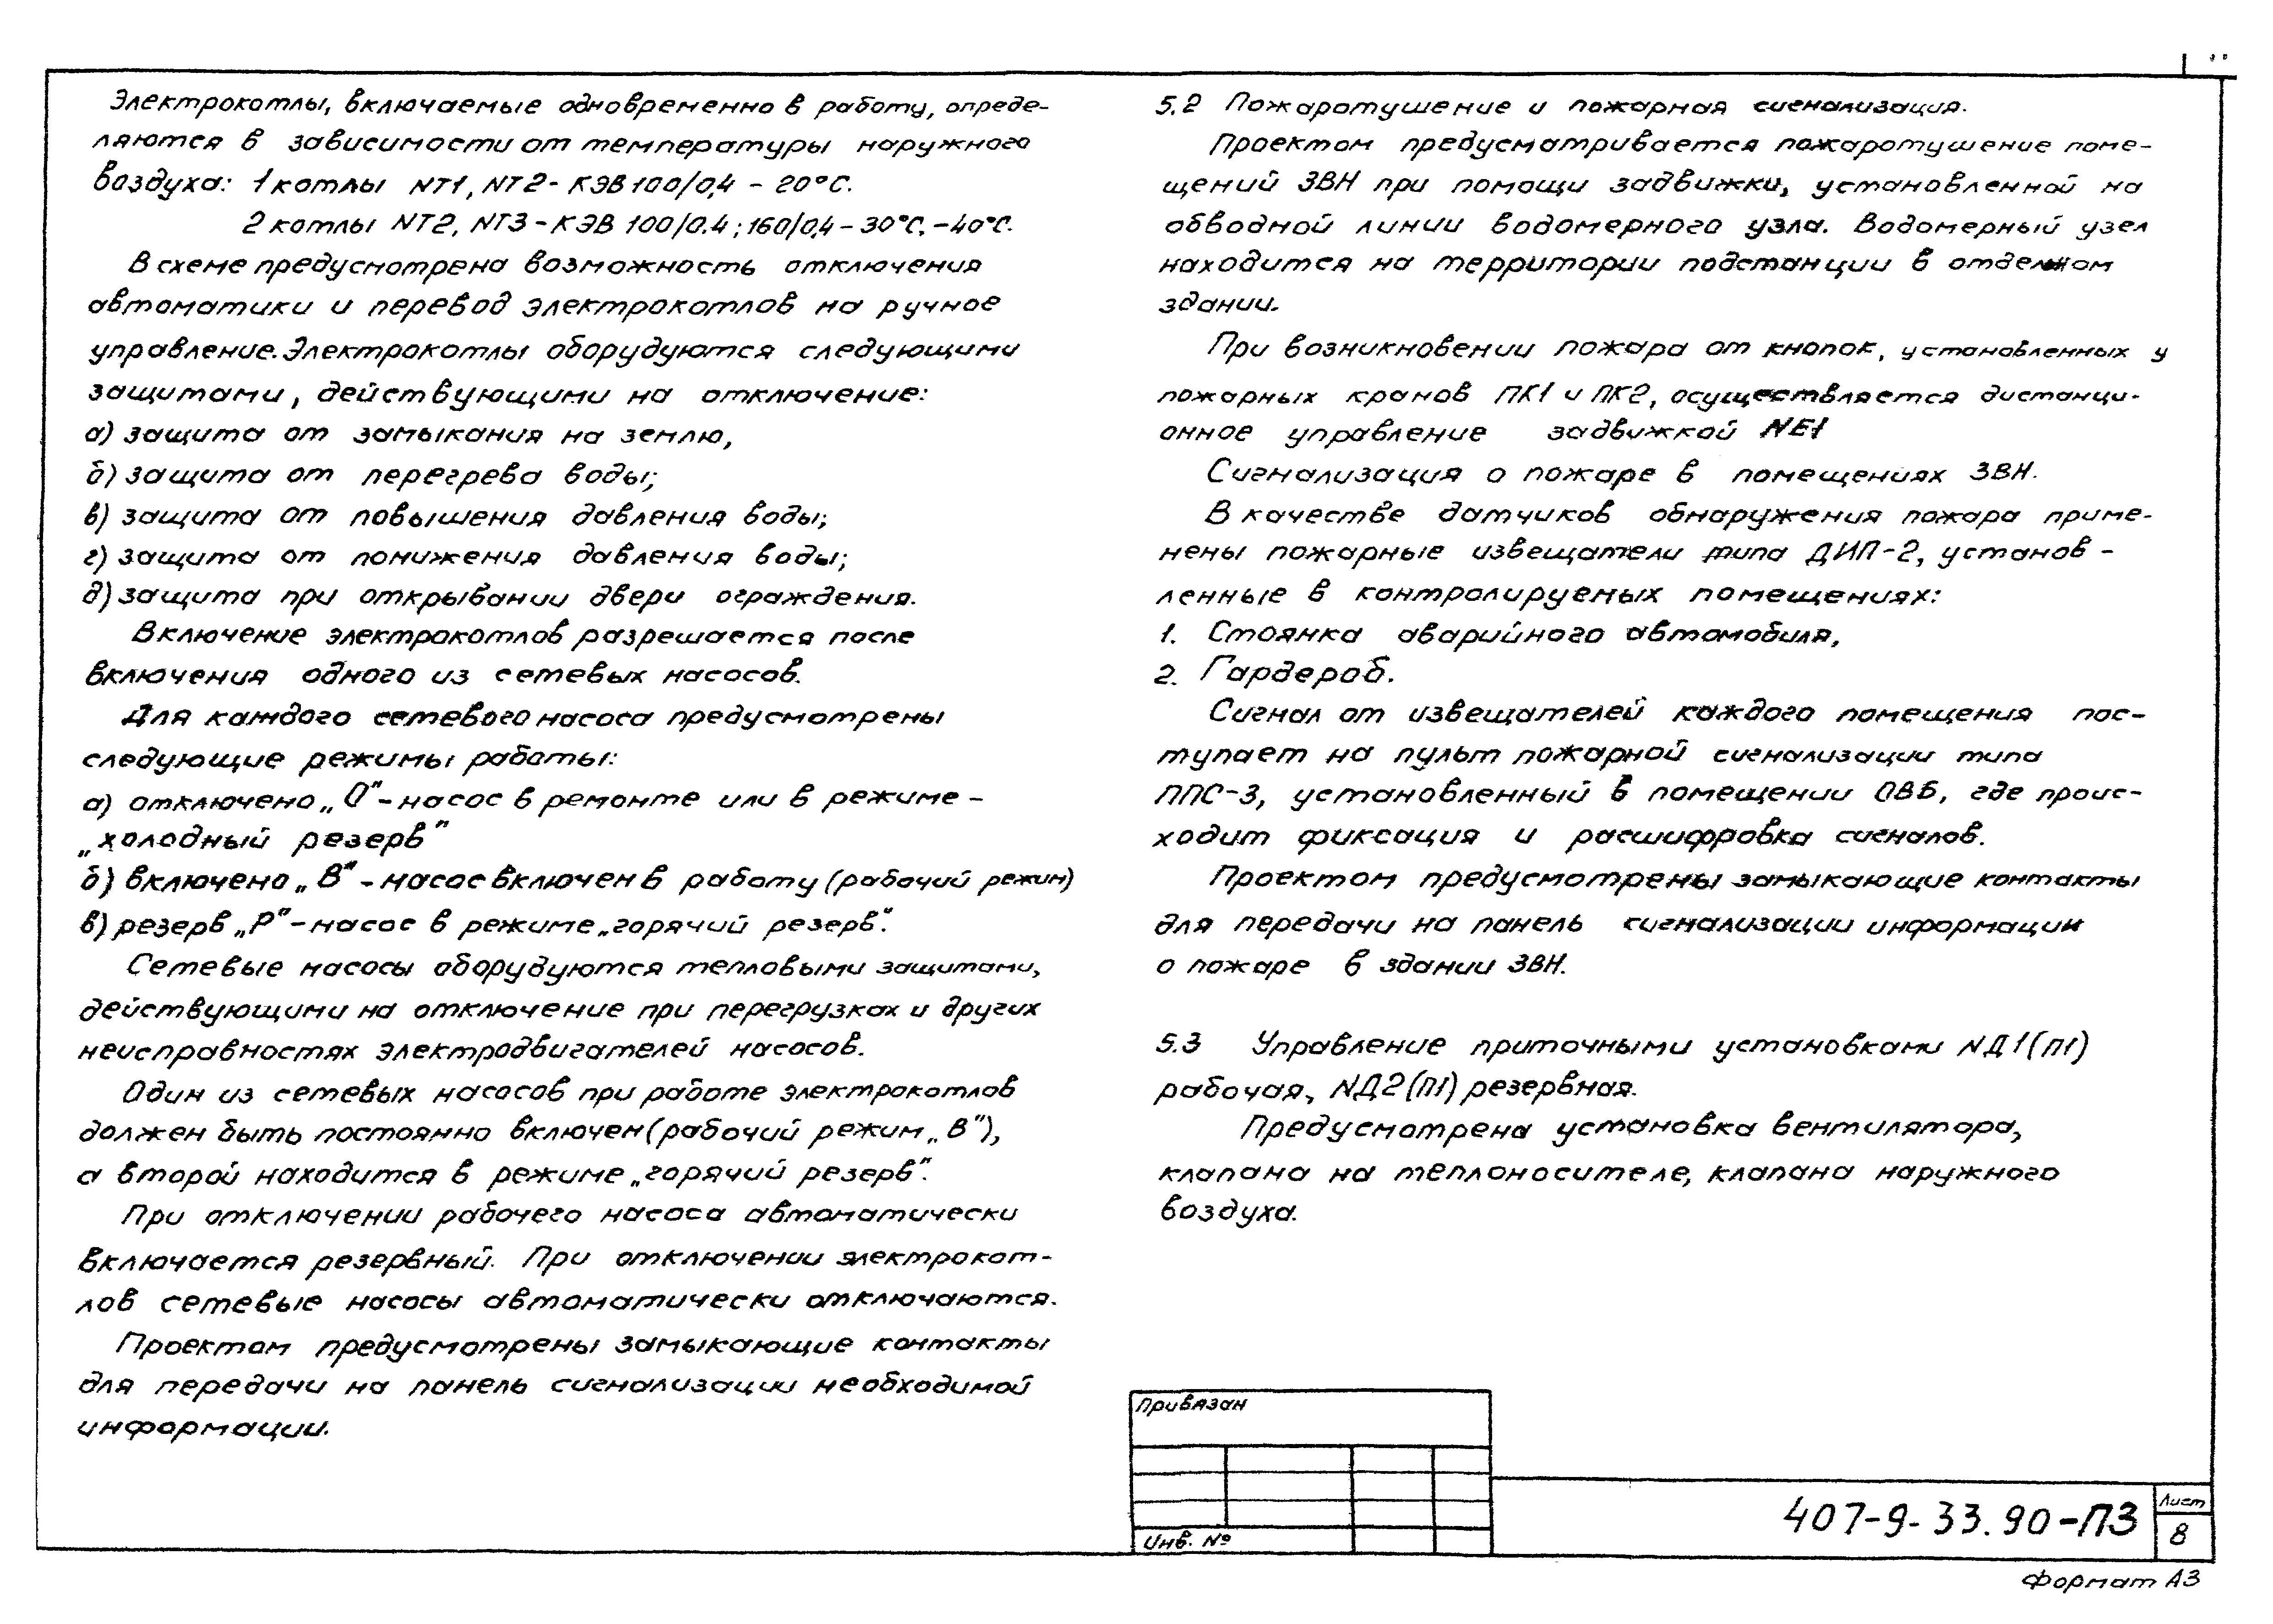 Электрокотлы, включаемые одновременно в работу, опреде-
ляются в зависимости от температуры наружного
воздуха: 1 котлы NT1, NT2 - КЭВ 100/0,4 - 20°С.
2 котлы NT2, NT3 - КЭВ 100/0.4; 160/0,4 - 30°С, -40°С.
В схеме предусмотрена возможность отключения
автоматики и перевод электрокотлов на ручное
управление. Электрокотлы оборудуются следующими
защитами, действующими на отключение:
а) защита от замыкания на землю,
б) защита от перегрева воды;
в) защита от повышения давления воды;
г) защита от понижения давления воды;
д) защита при открывании двери ограждения.
Включение электрокотлов разрешается после
включения одного из сетевых насосов.
Для каждого сетевого насоса предусмотрены
следующие режимы работы:
а) отключено „О" - насос в ремонте или в режиме -
„холодный резерв"
б) включено „В" - насос включен в работу (рабочий режим)
в) резерв „Р" - насос в режиме „горячий резерв".
Сетевые насосы оборудуются тепловыми защитами,
действующими на отключение при перегрузках и других
неисправностях электродвигателей насосов.
Один из сетевых насосов при работе электрокотлов
должен быть постоянно включен (рабочий режим „В"),
а второй находится в режиме „горячий резерв".
При отключении рабочего насоса автоматически
включается резервный. При отключении электрокот-
лов сетевые насосы автоматически отключаются.
Проектом предусмотрены замыкающие контакты
для передачи на панель сигнализации необходимой
информации.
5.2 Пожаротушение и пожарная сигнализация.
Проектом предусматривается пожаротушение поме-
щений ЗВН при помощи задвижки, установленной на
обводной линии водомерного узла. Водомерный узел
находится на территории подстанции в отдельном
здании.
При возникновении пожара от кнопок, установленных у
пожарных кранов ПК1 и ПК2, осуществляется дистанци-
онное управление задвижкой NE1
Сигнализация о пожаре в помещениях ЗВН.
В качестве датчиков обнаружения пожара приме-
нены пожарные извещатели типа ДИП-2, установ-
ленные в контролируемых помещениях:
1. Стоянка аварийного автомобиля,
2. Гардероб.
Сигнал от извещателей каждого помещения пос-
тупает на пульт пожарной сигнализации типа
ППС-3, установленный в помещении ОВБ, где проис-
ходит фиксация и расшифровка сигналов.
Проектом предусмотрены замыкающие контакты
для передачи на панель сигнализации информации
о пожаре в здании ЗВН.
5.3 Управление приточными установками NД1(П1)
рабочая, NД2(П1) резервная.
Предусмотрена установка вентилятора,
клапана на теплоносителе, клапана наружного
воздуха.
Привязан
Инв. №
407-9-33.90-ПЗ
Лист
8
Формат А3